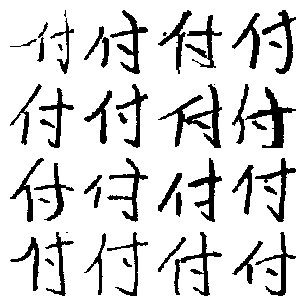 付付付付
付付付付
付付付付
付付付付